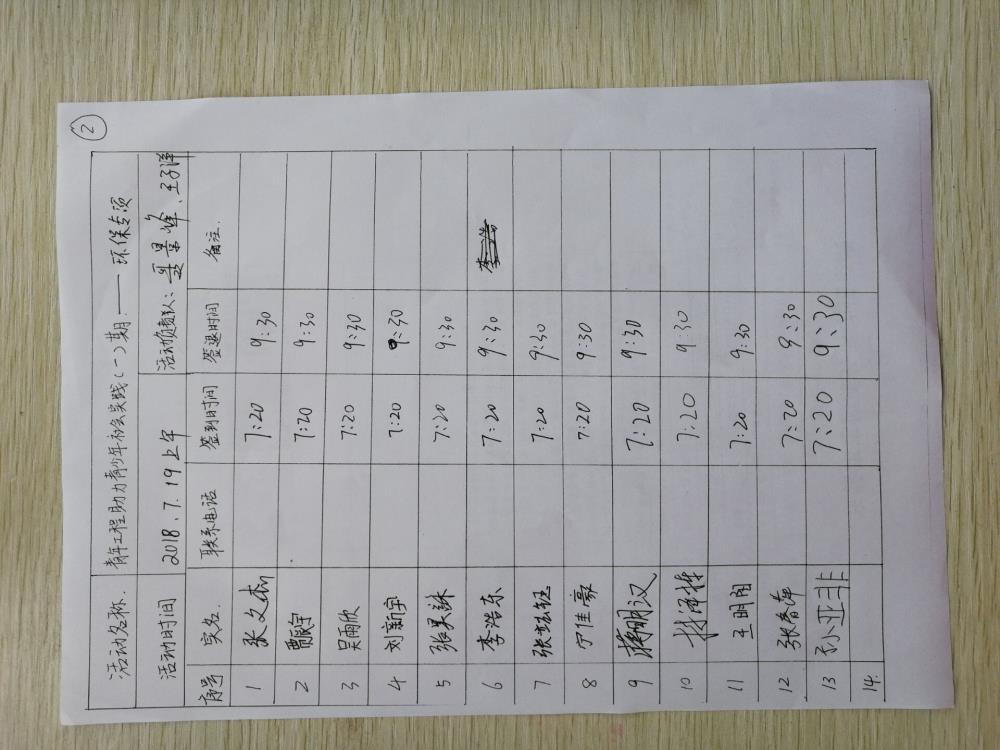 ②
活动名称. 青年工程助力青少年社会实践(一)期.——环保专项
活动时间 2018.7.19上午 活动负责人: 景峰、王子洋
序号 实名. 联系电话 签到时间 签退时间 备注.
1 张文杰 7:20 9:30
2 7:20 9:30
3 吴雨欣 7:20 9:30
4 刘新宇 7:20 9:30
5 张昊 7:20 9:30
6 李浩东 7:20 9:30
7 张 7:20 9:30
8 宁佳豪 7:20 9:30
9 蒋明汉 7:20 9:30
10 7:20 9:30
11 王明 7:20 9:30
12 张春萍 7:20 9:30
13 孙亚非 7:20 9:30
14.